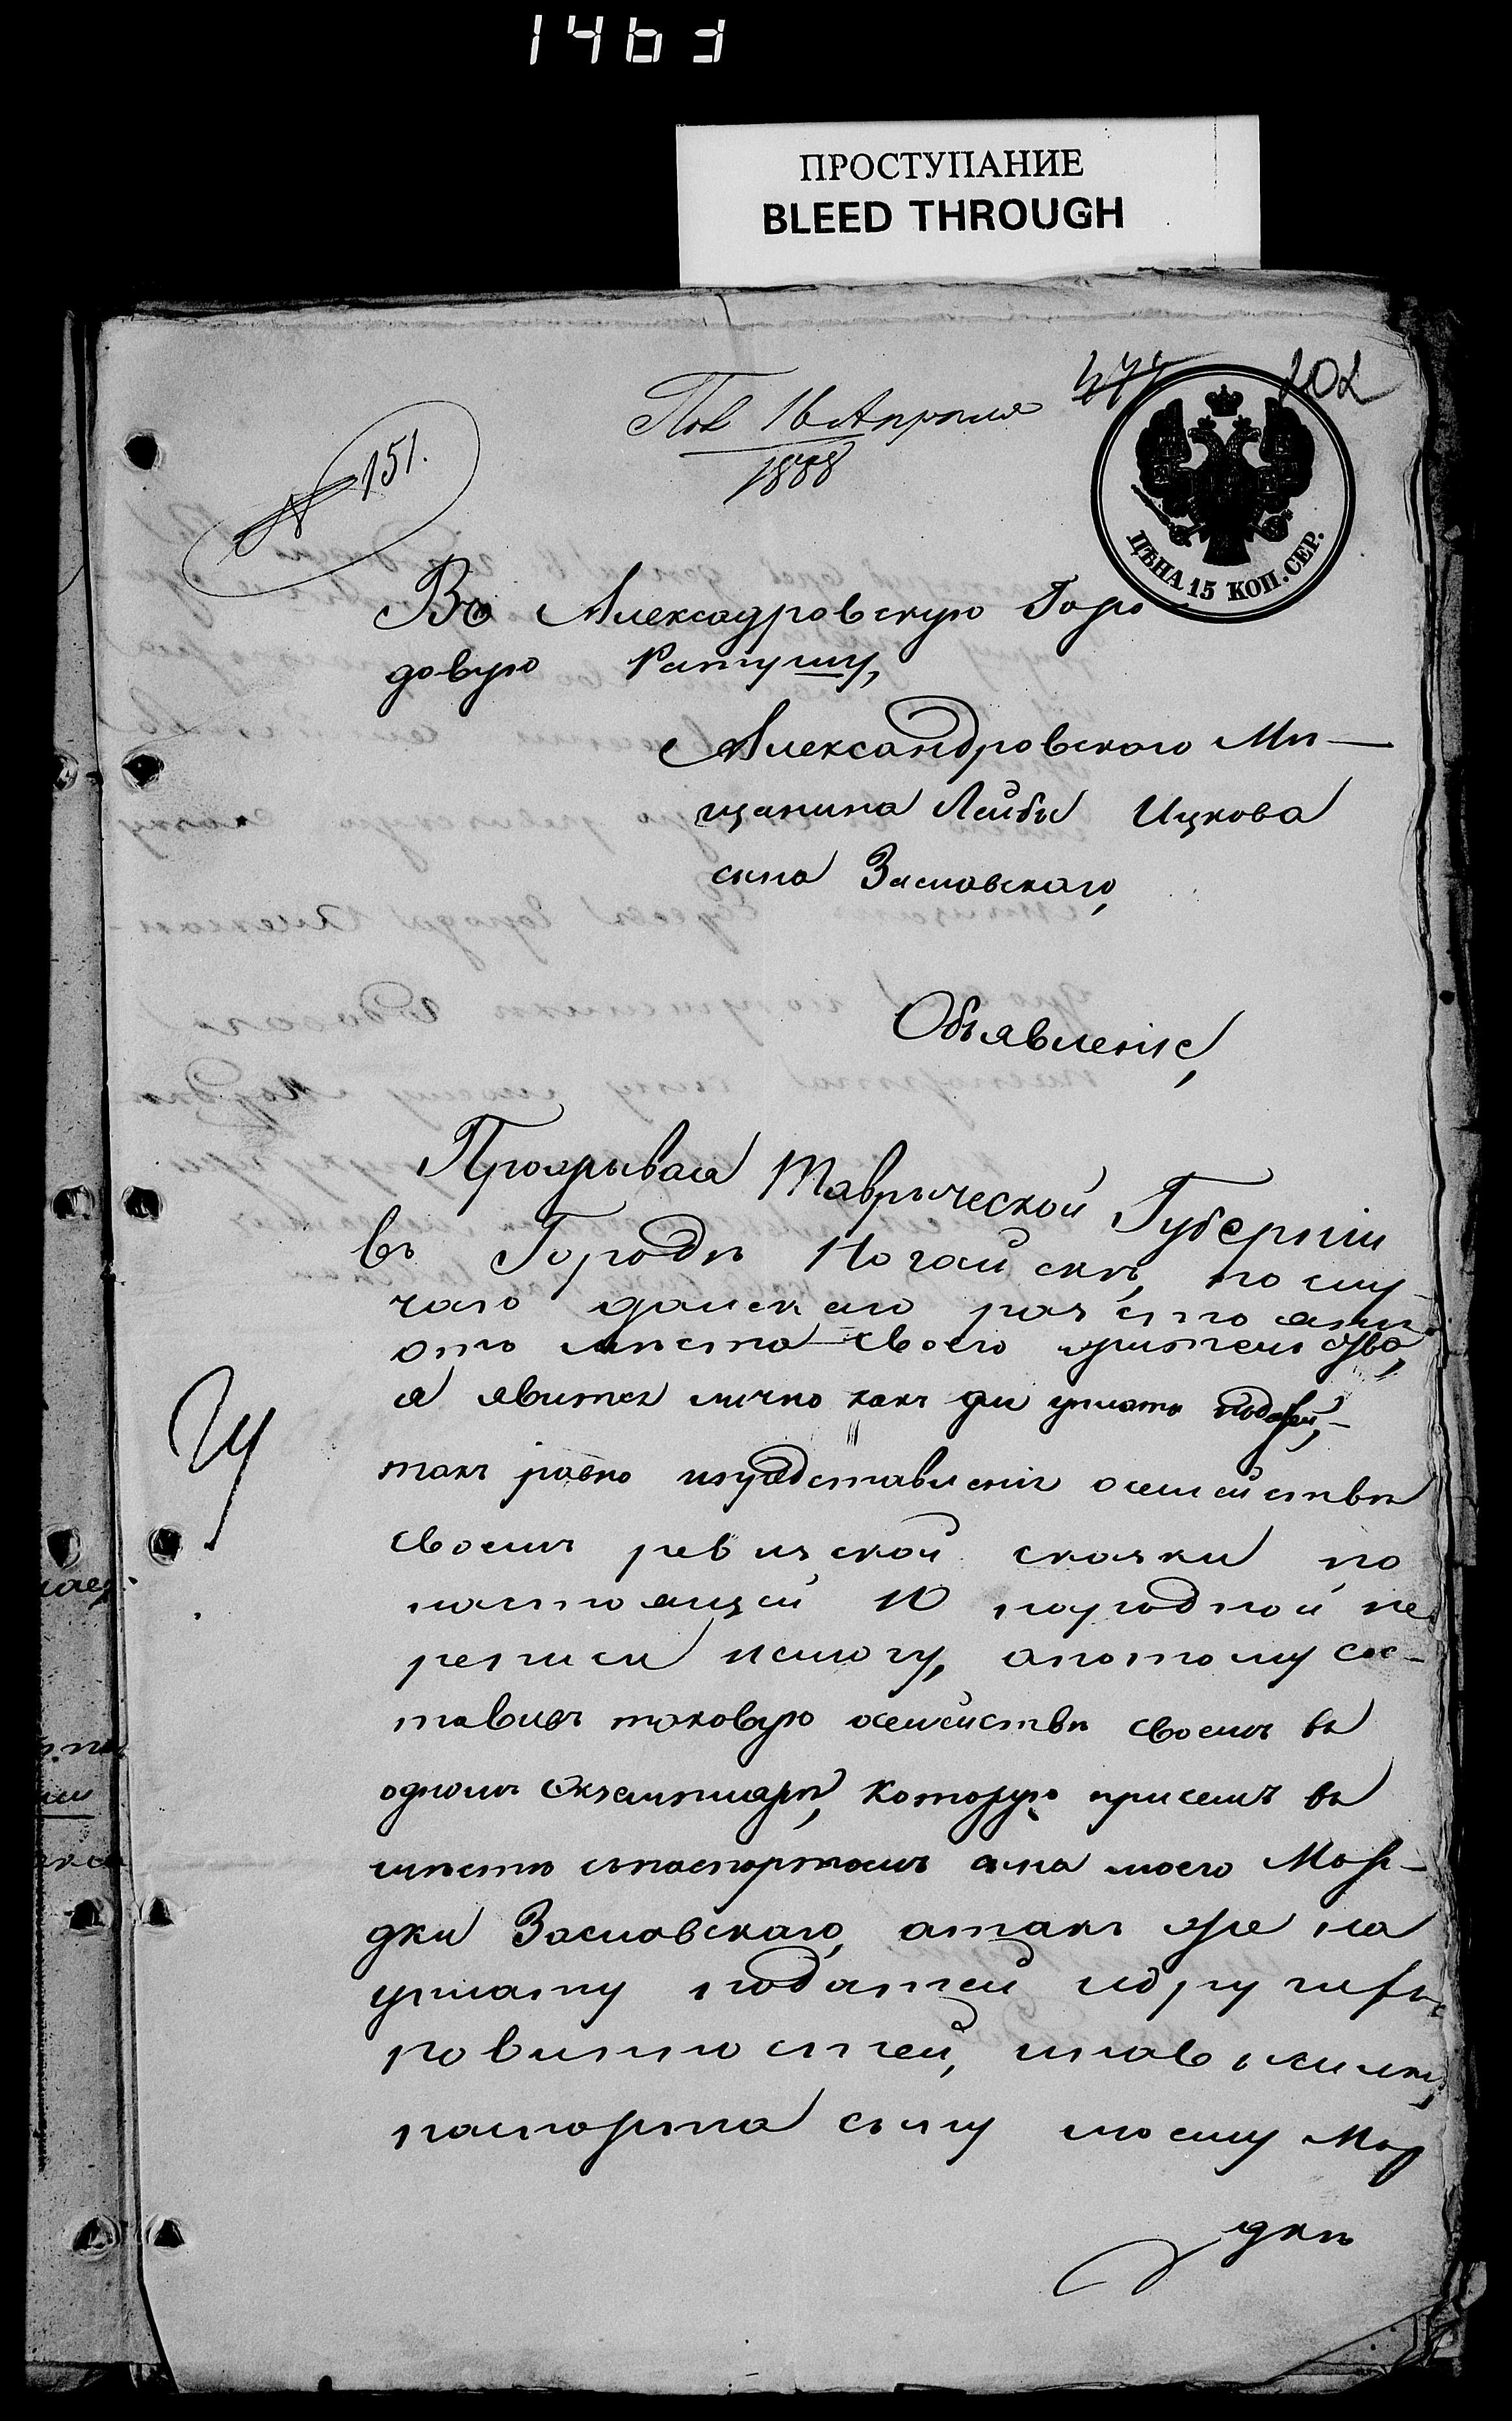 1463
ПРОСТУПАНИЕ
BLEED THROUGH
474 202
Пол 16 Апреля
1858
№ 151.
ЦѢНА 15 КОП. СЕР.
Во Алексадровскую Горо
довую Ратушу,
Александровского Мѣ-
щанина Лейбы Ицкова
сына Заславскаго,
Объявленіе,
Проживая Таврической Губерніи
въ Городѣ Ногайскѣ, по слу-
чаю далекаго разстоянія
отъ мѣста своего жительства,
я явится лично какъ для уплаты податей,-
такъ равно и представленія о семействѣ
своемъ ревизской сказки по
настоящей 10 народной пе
реписи немогу, а потому сос-
тавивъ таковую о семействѣ своемъ въ
одномъ Экземплярѣ, которую при семъ в
мѣстѣ спаспортомъ сына моего Мор-
дки Заславскаго, а такъ же на
уплату податей и другихъ
повинностей, и на
паспорта сыну моему Мор
дкѣ